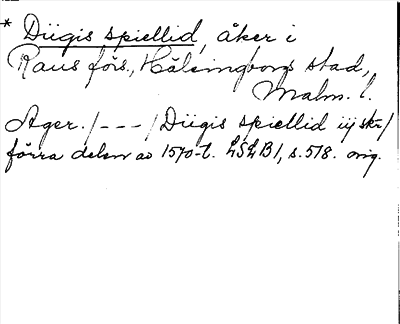 * Diigis spiellid, åker i
Raus förs., Hälsingborgs stad,
Malm. l.
Ager. / - - - / Diigis spiellid iij skr /
förra delen av 1570-t. LSLB1, s. 518. orig.